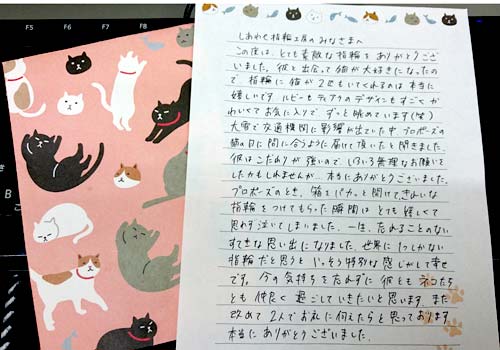 しあわせ指輪工房のみなさまへ
この度は、とても素敵な指輪をありがとうござ
いました。彼と出会って猫が大好きになったの
で指輪に猫が2匹もいてくれるのは本当に
嬉しいです。ルビーもティアラのデザインもすごくか
わいくてお気に入りで、ずっと眺めています(笑)
大雪で交通機関に影響が出ていた中、プロポーズの
猫の日に間に合うように届けて頂いたと聞きました。
彼はこだわりが強いので、いろいろ無理なお願いを
したかもしれませんが、本当にありがとうございました。
プロポーズのとき、箱をパカッと開けてきれいな
指輪をつけてもらった瞬間はとても嬉しくて
思わず泣いてしまいました。一生、忘れることのない
すてきな思い出になりました。世界に1つしかない
指輪だと思うといっそう特別な感じがして幸せ
です。今の気持ちを忘れずに彼ともネコたち
とも仲良く過ごしていきたいと思います。また
改めて2人でお礼に伺えたらと思っております。
本当にありがとうございました。
F5
F6
F7
F8
B